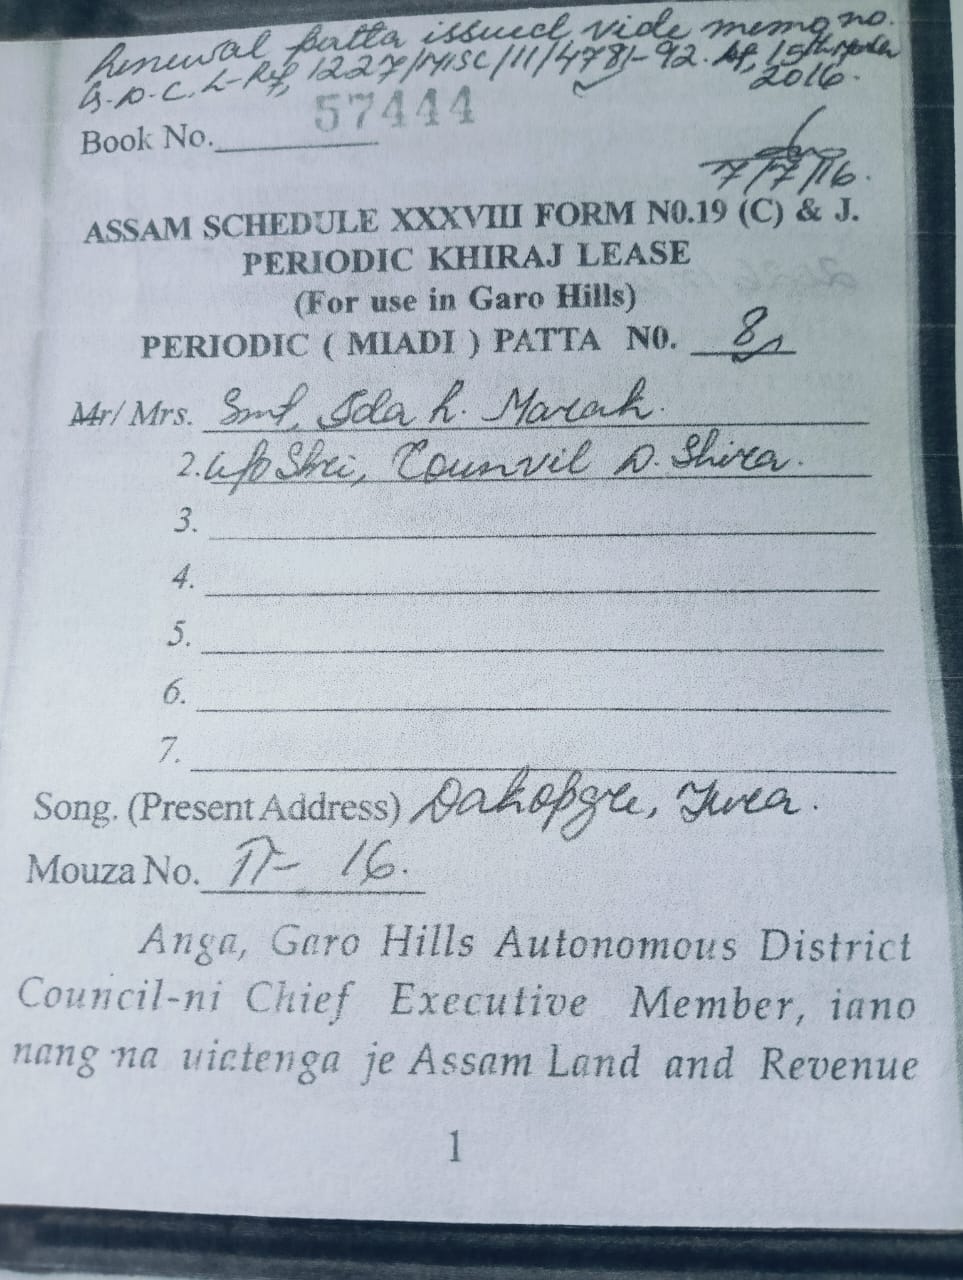 Renewal patta issued vide memo no.
G.D.C. L-Rf, 1227/MISC/11/4781-92. df, 15th
2016.
Book No. 57444
7/7/16.
ASSAM SCHEDULE XXXVIII FORM N0.19 (C) & J.
PERIODIC KHIRAJ LEASE
(For use in Garo Hills)
PERIODIC ( MIADI ) PATTA N0. 8
Mr/ Mrs. Smt, Ida R. Marak.
2. w/o Shri, Counvil D. Shira.
3.
4.
5.
6.
7.
Song. (Present Address) Dakopgre, Tura.
Mouza No. II- 16.
Anga, Garo Hills Autonomous District
Council-ni Chief Executive Member, iano
nang·na uictenga je Assam Land and Revenue
1